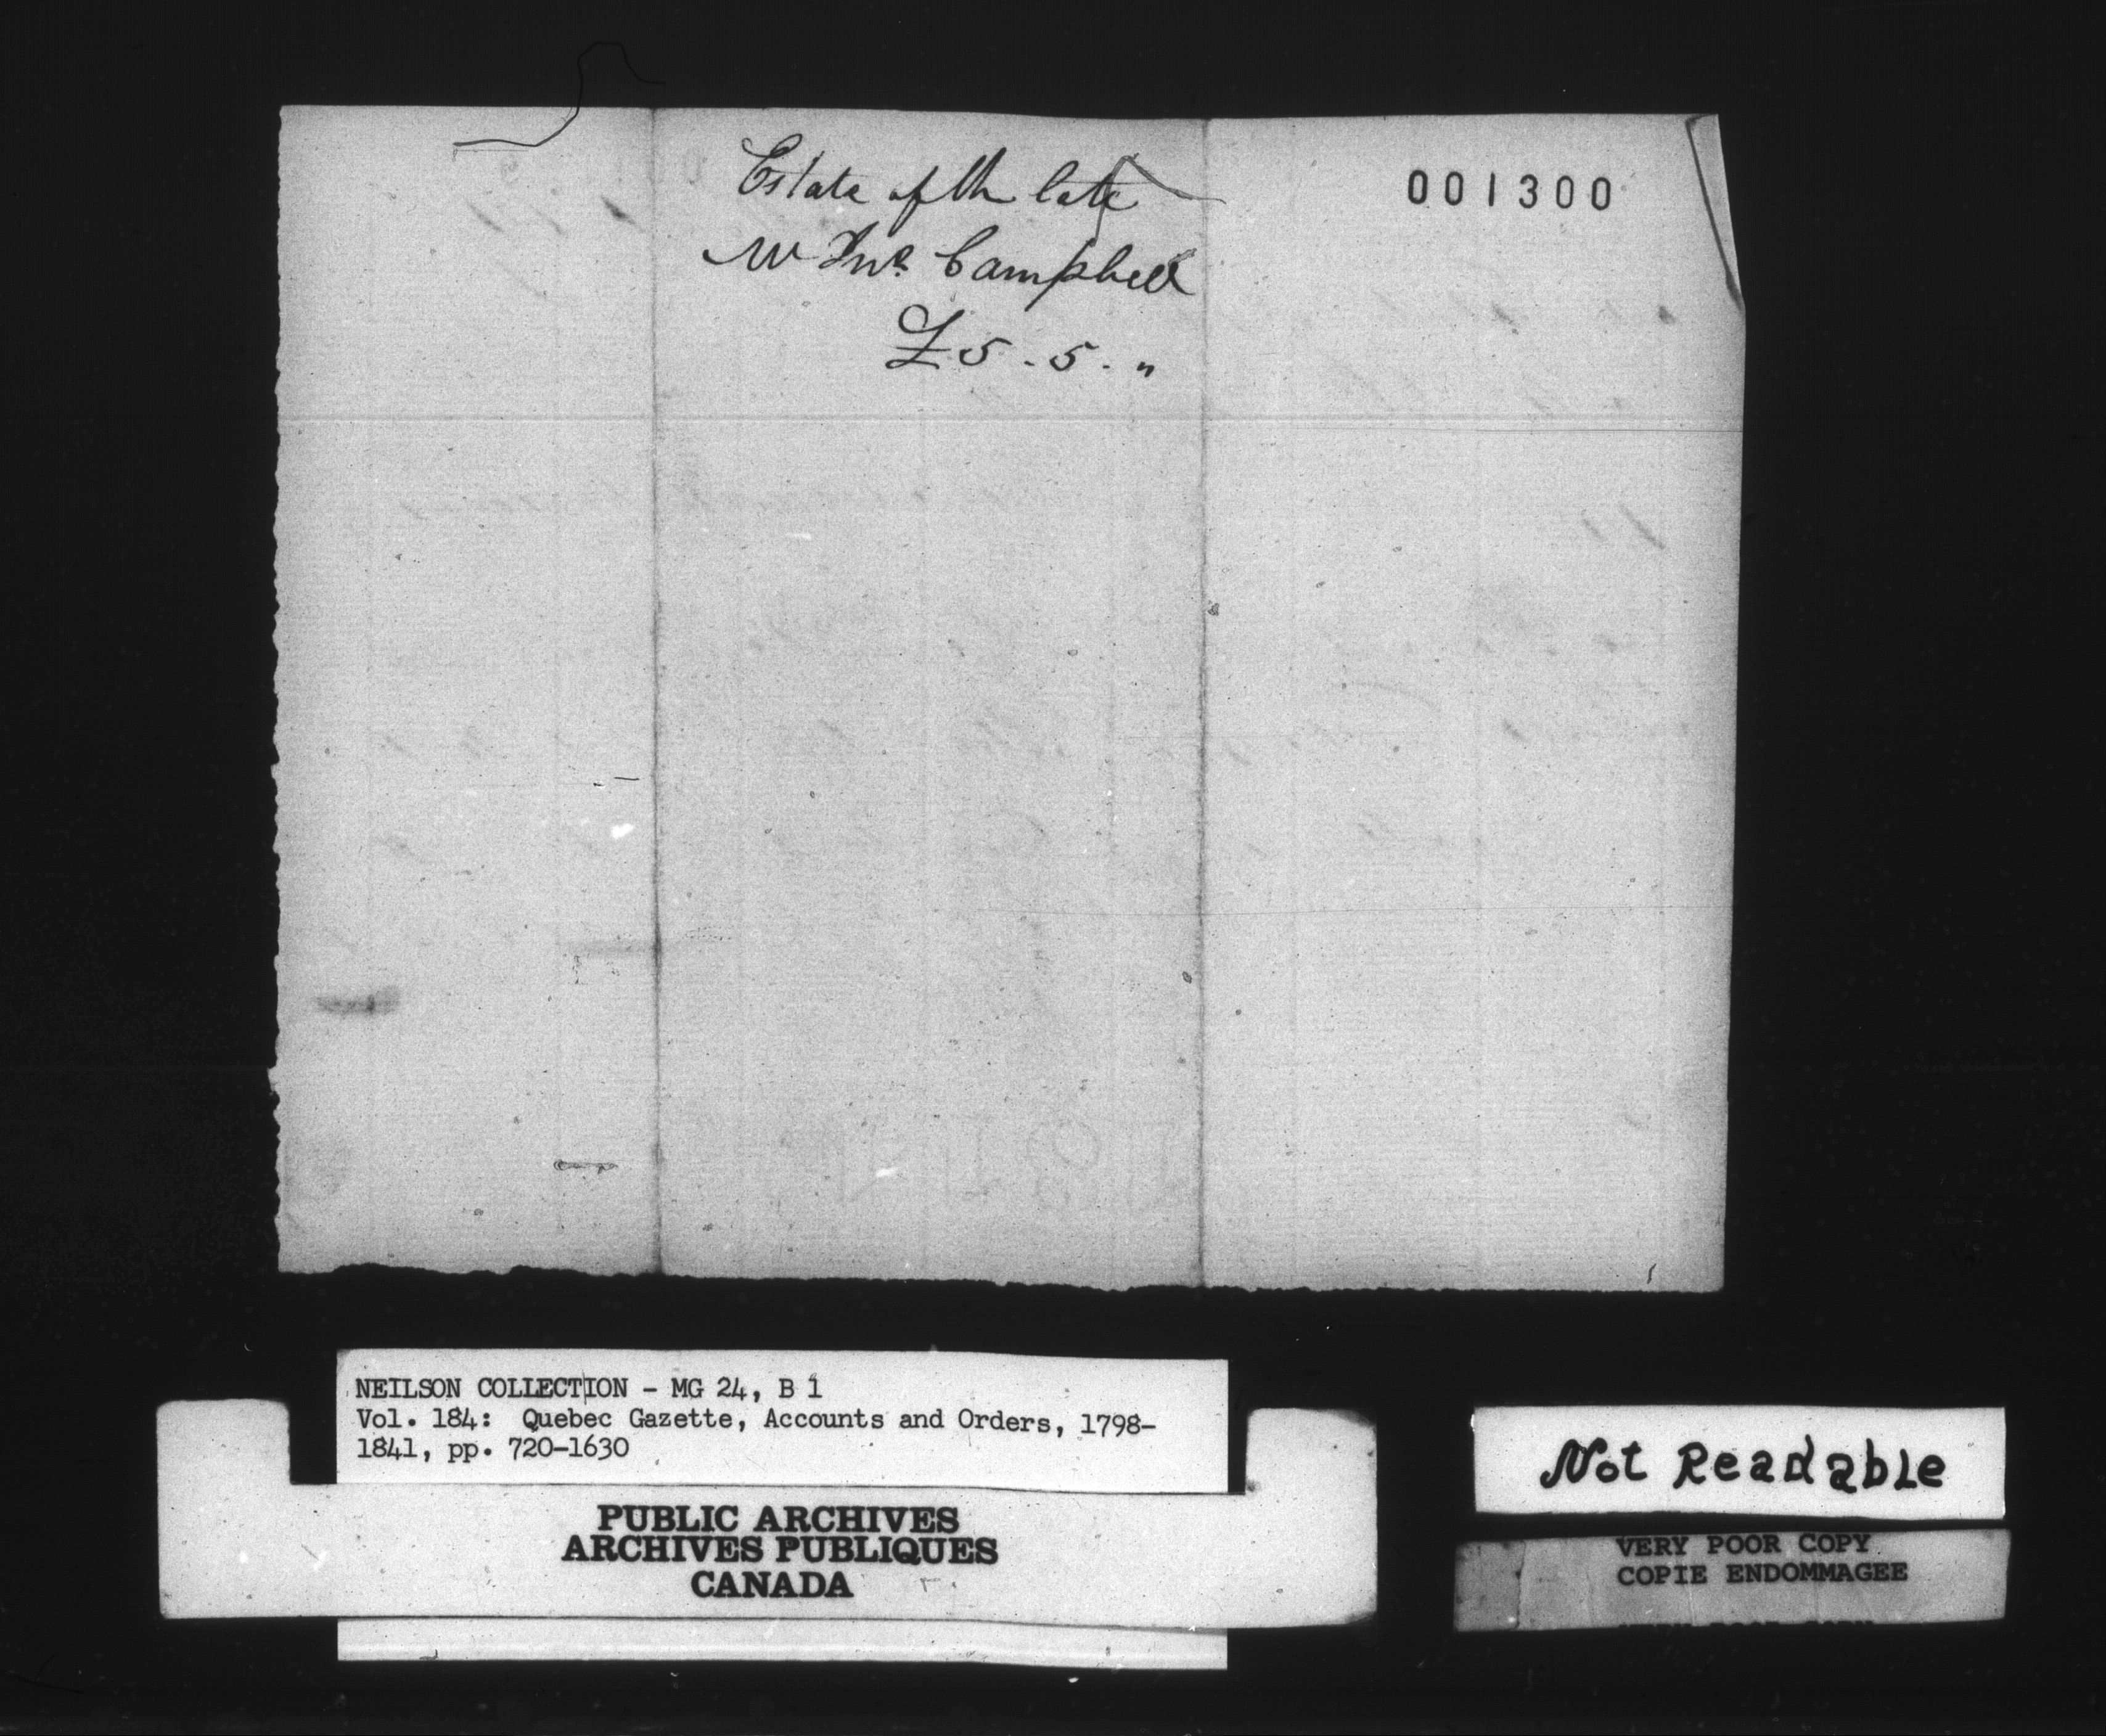 Estate of the late
Mr Jno. Campbell
£5.5.„
001300
NEILSON COLLECTION - MG 24, B 1
Vol. 184: Quebec Gazette, Accounts and Orders, 1798-
1841, pp. 720-1630
PUBLIC ARCHIVES
ARCHIVES PUBLIQUES
CANADA
Not Readable
VERY POOR COPY
COPIE ENDOMMAGEE